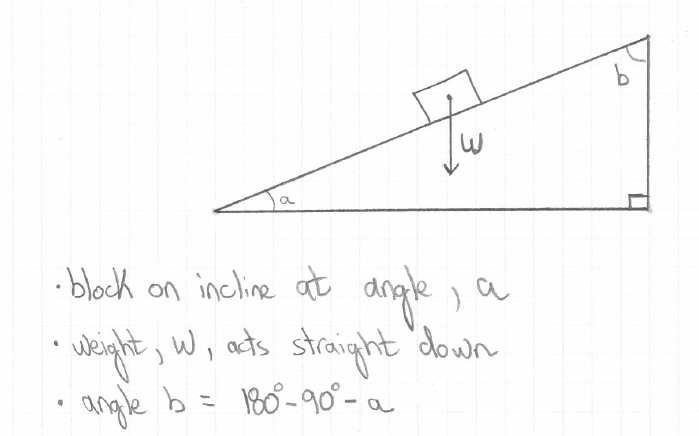 b
W
a
· block on incline at angle, a
· weight, W, acts straight down
· angle b = 180° - 90° - a